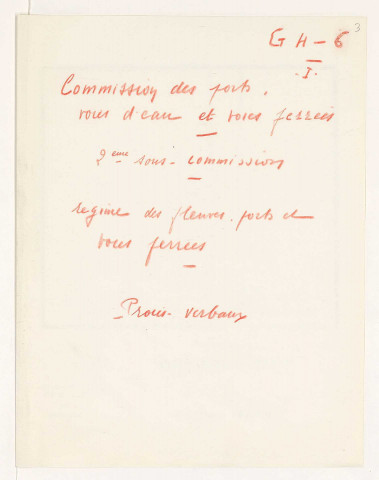 3
G H - 6
- I -
Commission des ports,
voies d'eau et voies ferrées
2eme sous-commission
régime des fleuves, ports et
voies ferrées
Procès-verbaux